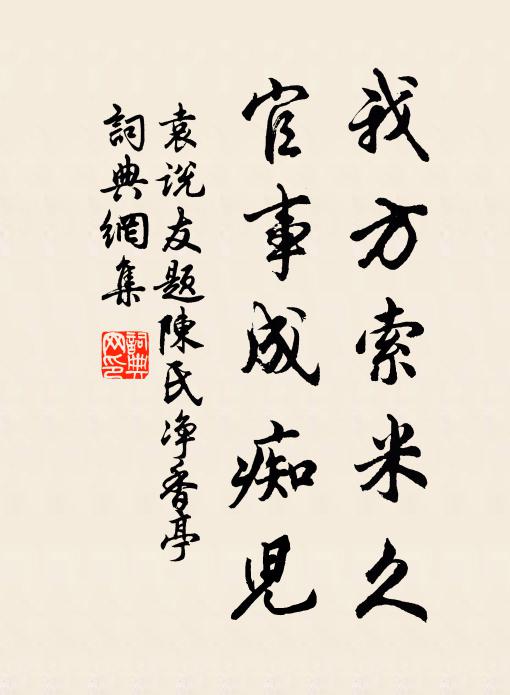 我方索米久
官事成痴児
袁说友题陳氏净香亭
詞典網集
詞典网印